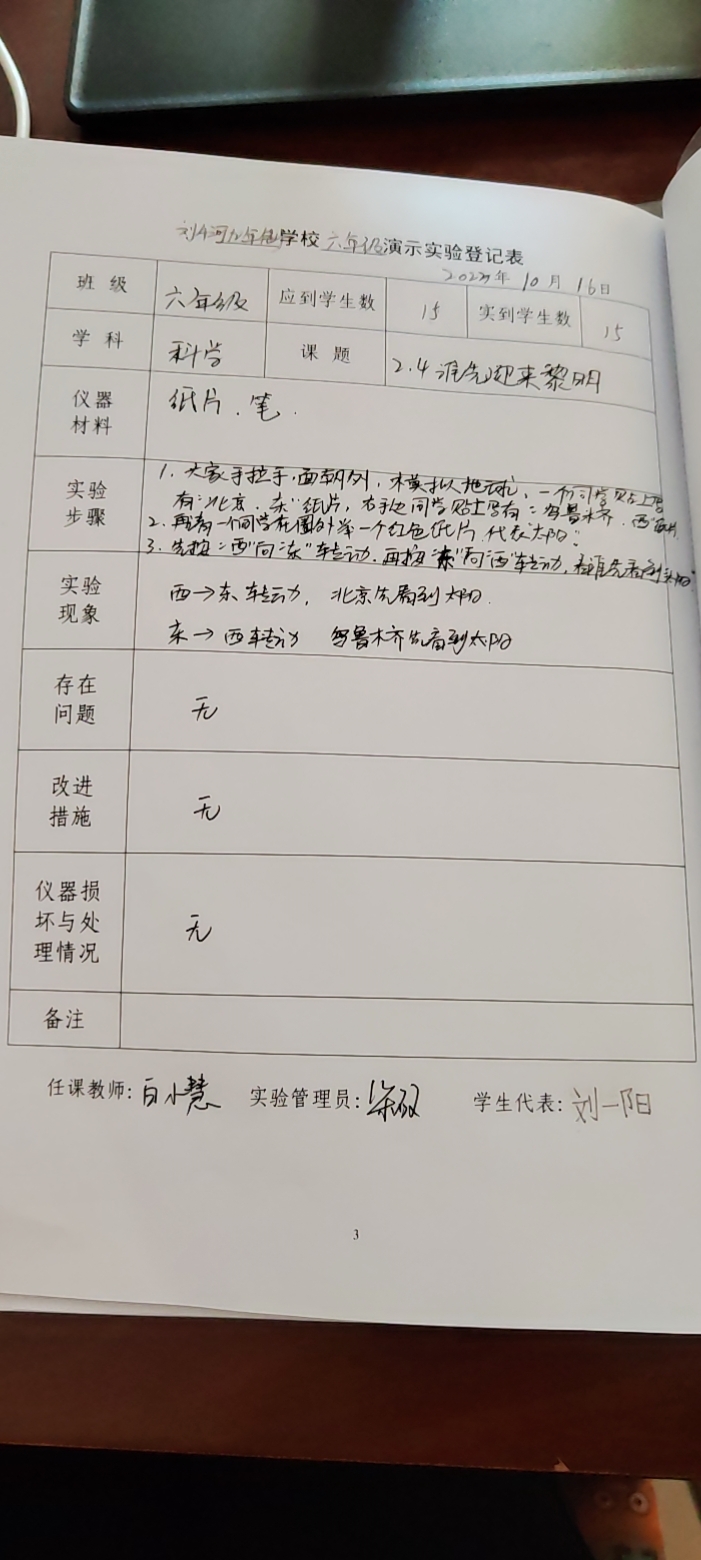 学校六年级演示实验登记表
年 10 月 16日
班 级 六年级 应到学生数 15 实到学生数 15
学 科 科学 课 题 2.4 谁先迎来黎明
仪器
材料
纸片、笔.
实验
步骤
1. 大家手拉手,面朝外,模拟地球,一个同学贴上写
有"北京、东"纸片,右手边同学贴上写有"乌鲁木齐、西"
2. 再有一个同学在圈外举一个红色纸片代表"太阳".
3. 先按"西"向"东"转动.再按"东"向"西"转动,看谁先看到"太阳".
实验
现象
西→东 转动, 北京先看到太阳.
东→西转动 乌鲁木齐先看到太阳
存在
问题
无
改进
措施
无
仪器损
坏与处
理情况
无
备注
任课教师:白小慧 实验管理员: 学生代表:刘一阳
3